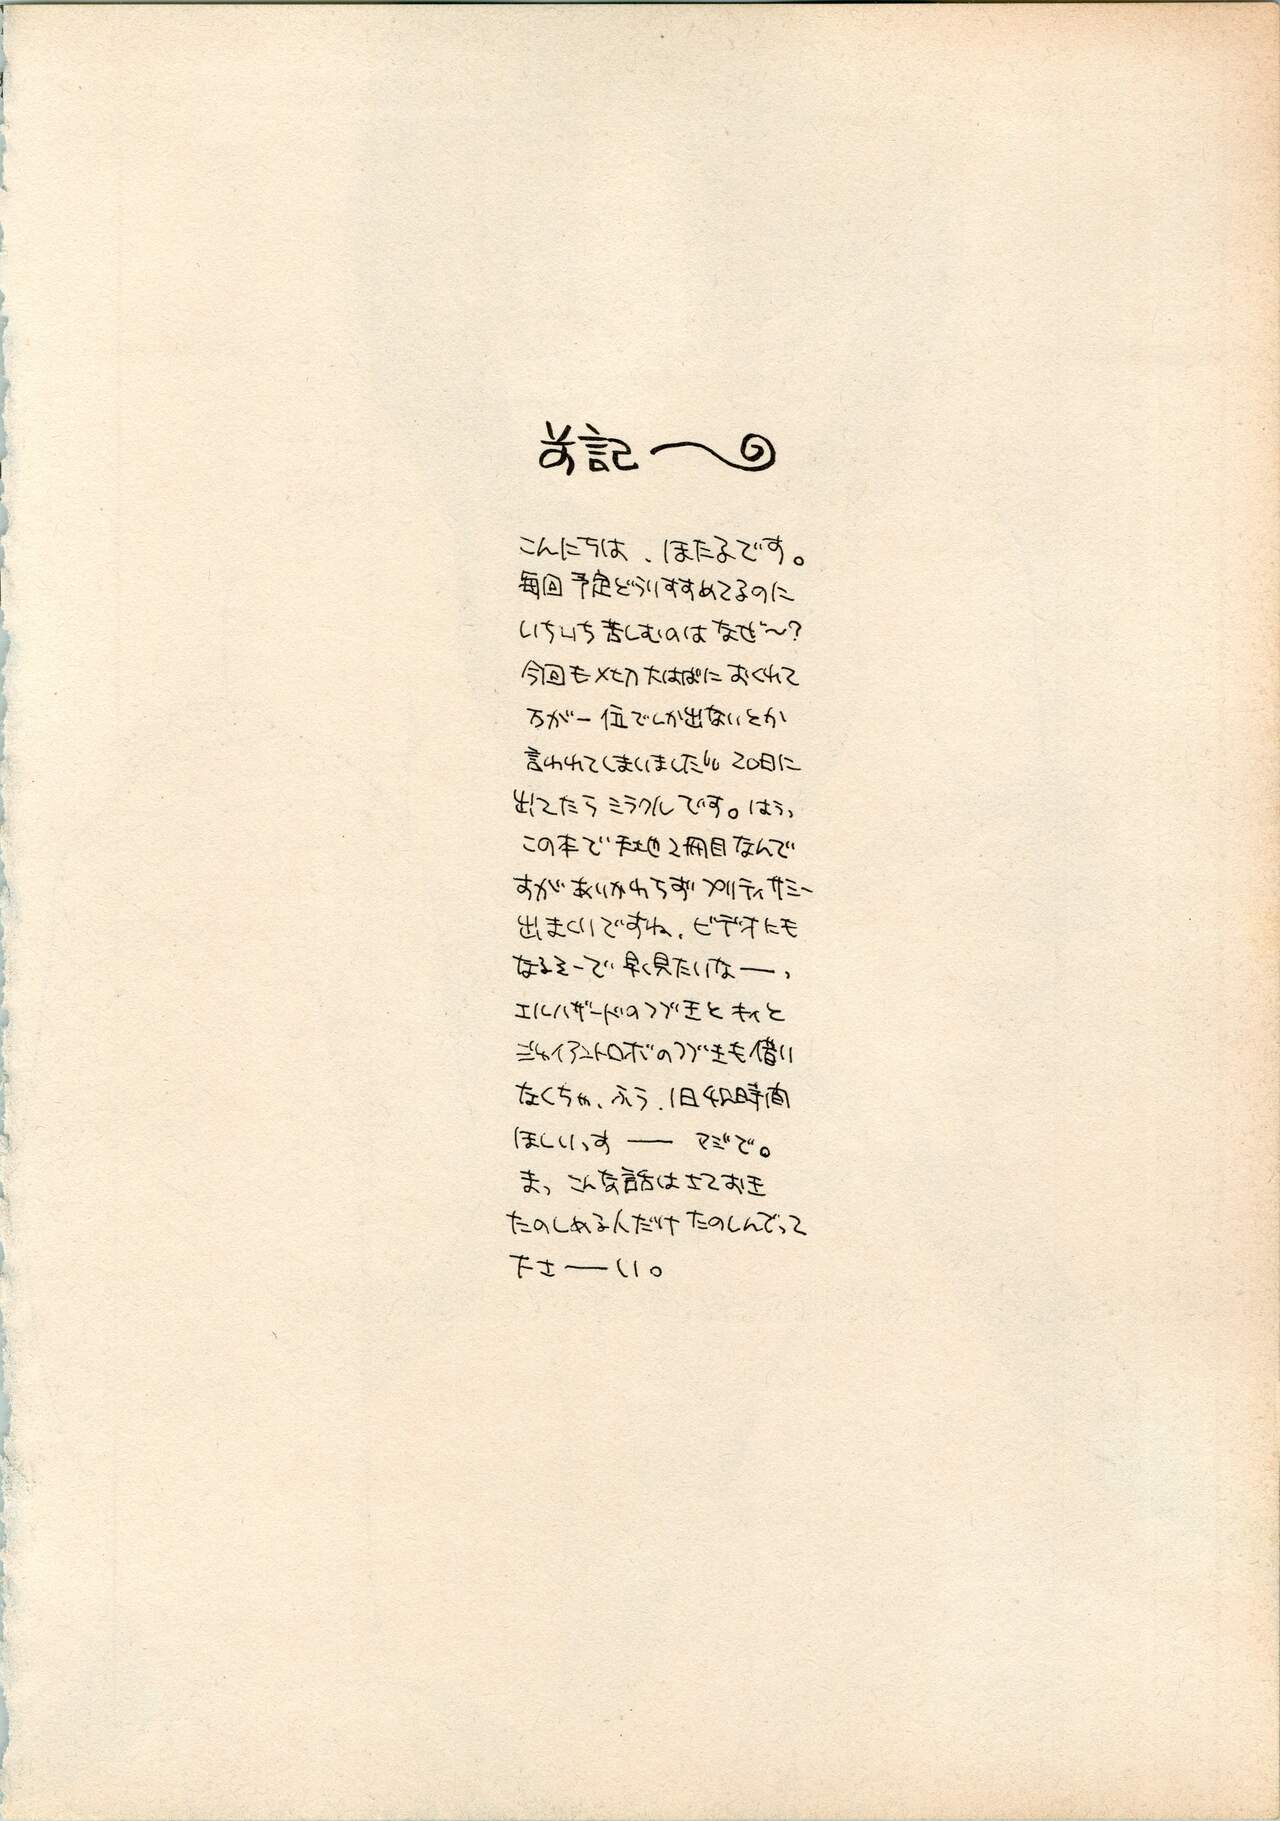 前記
こんにちは、ほたるです。
毎回予定どうりすすめてるのに
いちいち苦しむのはなぜ〜?
今回も〆切大はばにおくれて
万が一位でしか出ないとか
言われてしまいました 20日に
出てたらミラクルです。はぅっ
この本で天地2冊目なんで
すがあいかわらずプリティサミー
出まくりですね、ビデオにも
なるそーで早く見たいなーっ
エルハザードのつづきと
ジャイアントロボのつづきも借り
なくちゃ、ふう、1日42時間
ほしいっすーー マジで。
まっ こんな話はさておき
たのしめる人だけたのしんでって
たさーーい。